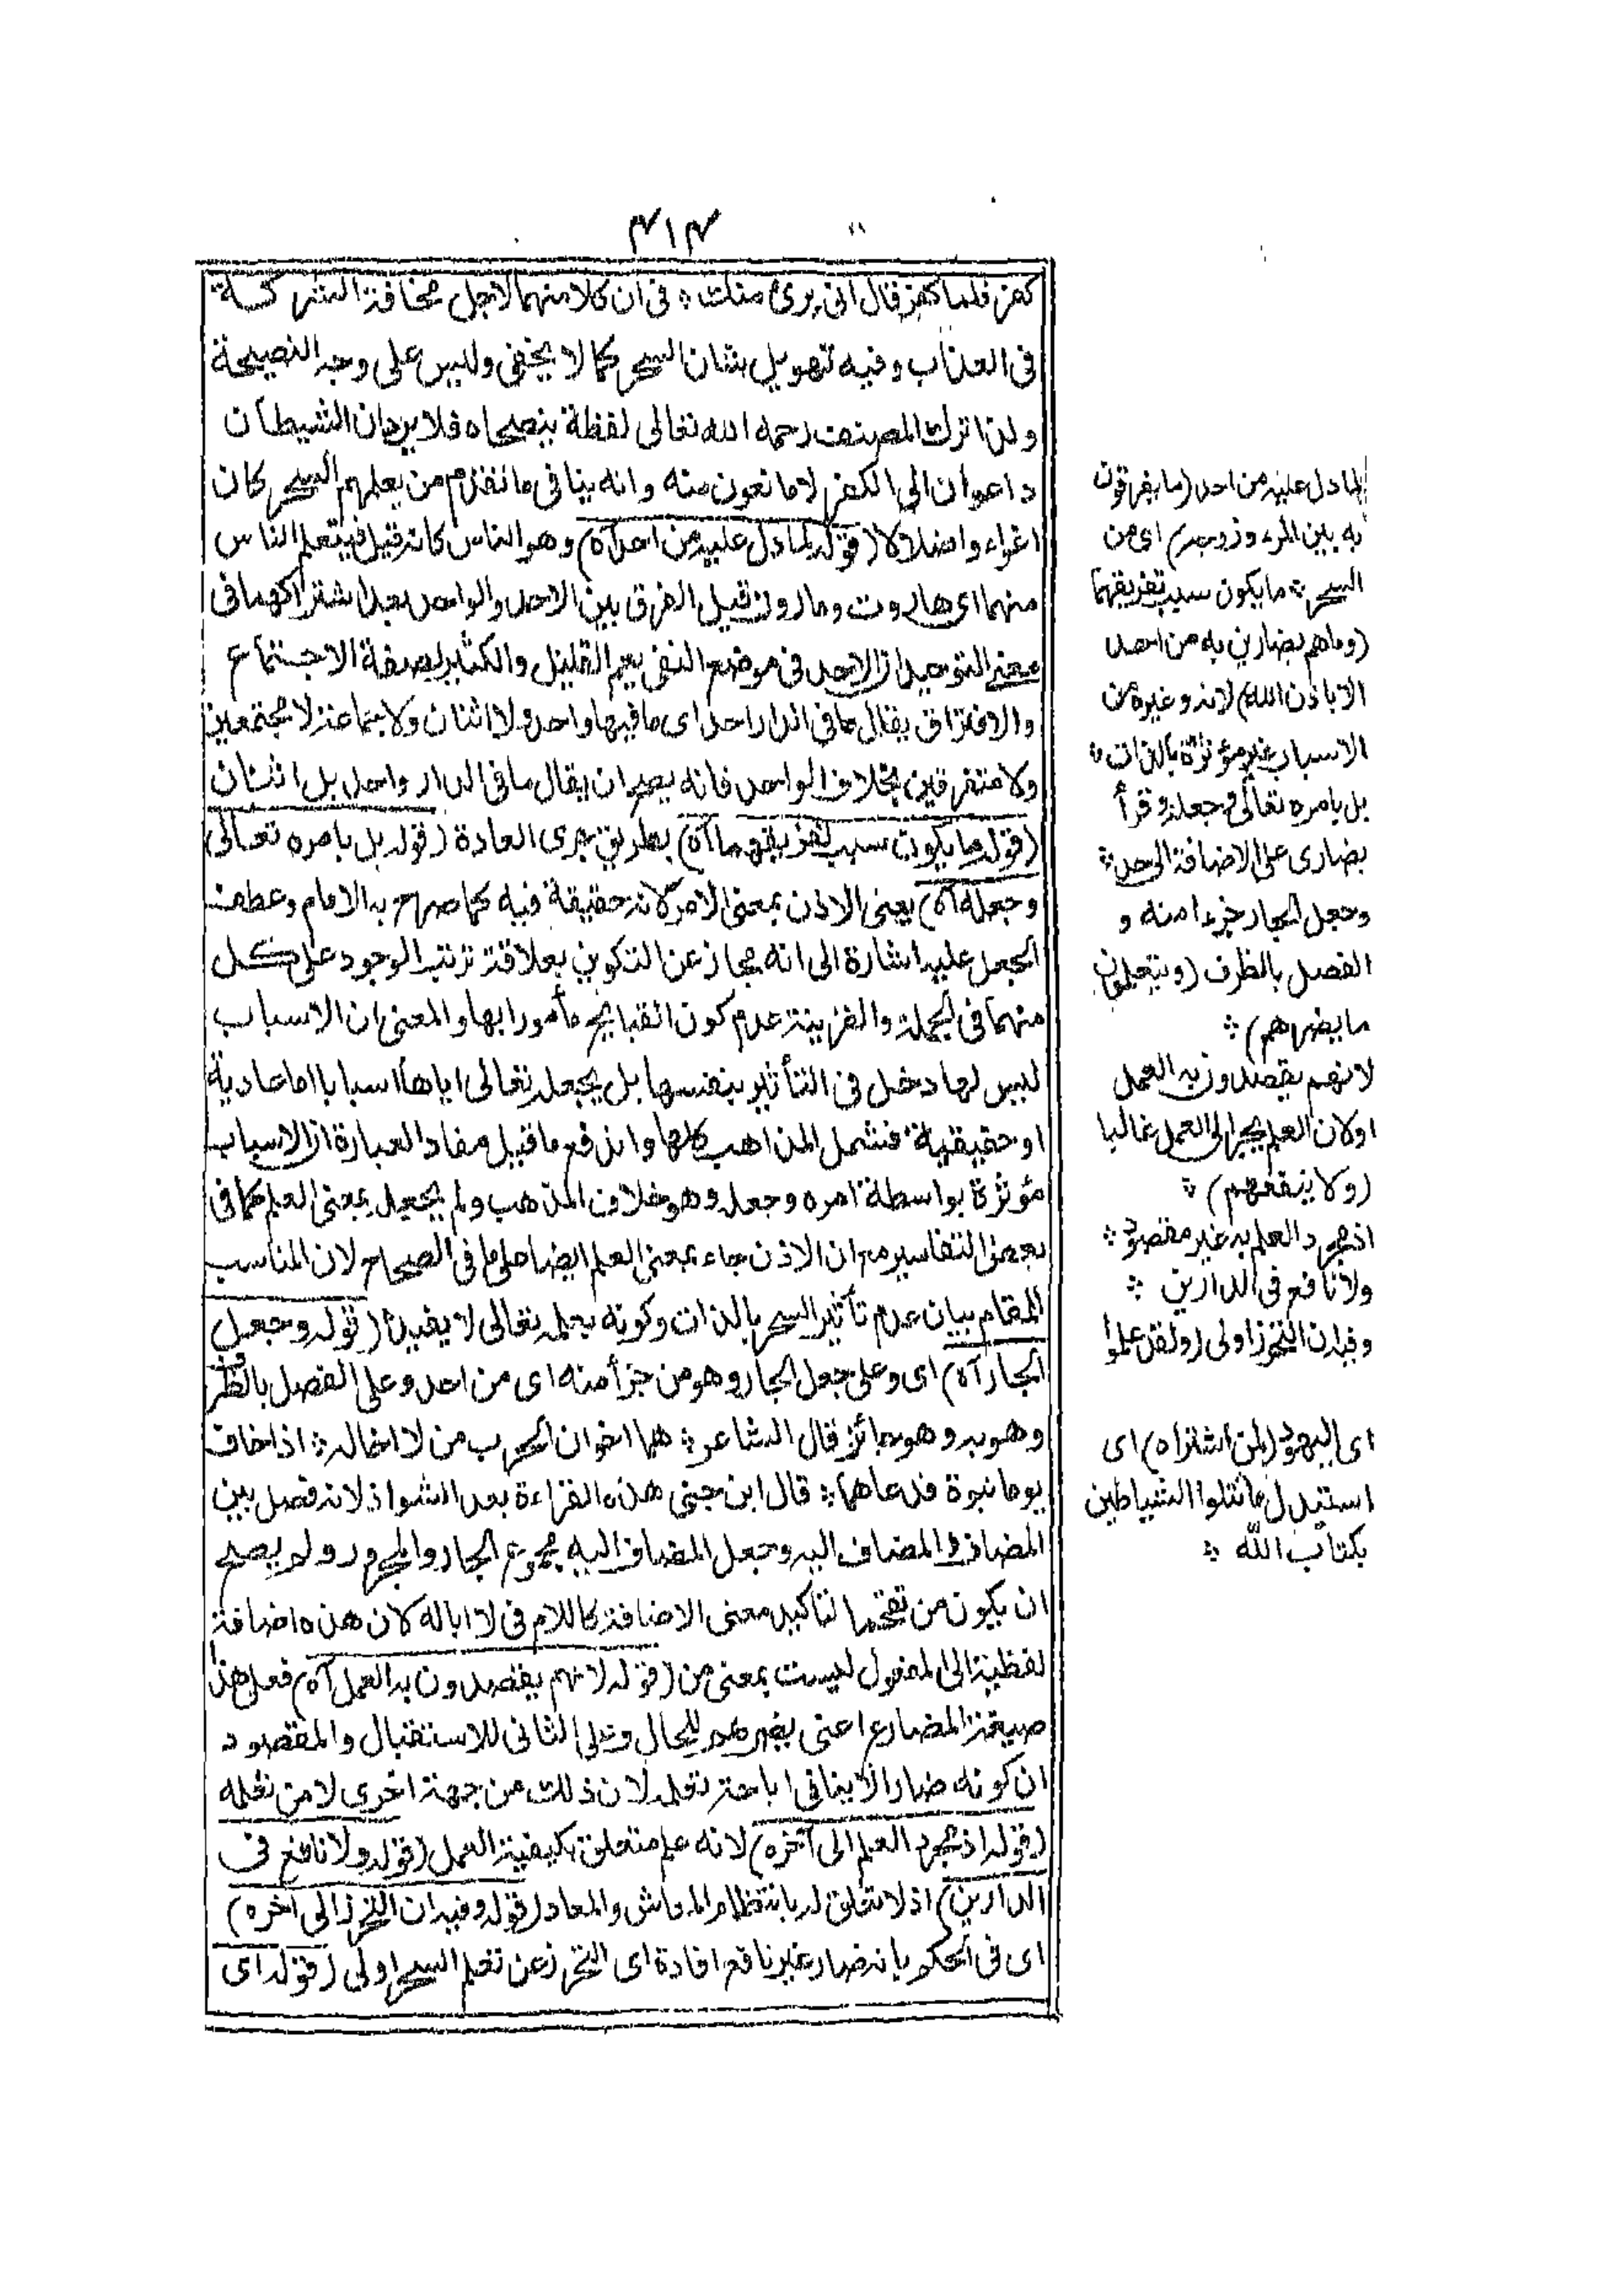 ٣١٣
كفر فلما كفر قال انى برئ منك ؞ فى ان كلا منهما لاجل مخافة الشركة
فى العذاب وفيه تهويل بشان السحر كما لا يخفى وليس على وجه النصيحة
ولذا ترك المصنف رحمه الله تعالى لفظة ينصحاه فلا يرد ان الشيطان
داعوان الى الكفر لا مانعون منه وانه ينافى ما تقدم من يعلمهم السحر كان
اغواء واضلالا (قوله لما دل عليه من احد آه) وهو الناس كانه قيل فيتعلم الناس
منهما اى هاروت وماروت قيل الفرق بين الاحد والواحد بعد اشتراكهما فى
معنى التوحيد ان الاحد فى موضع النفى يعم القليل والكثير بصفة الاجتماع
والافتراق يقال ما فى الدار احد اى ما فيها واحد ولا اثنان ولا ما عنه لا مجتمعين
ولا متفرقين بخلاف الواحد فانه يصح ان يقال ما فى الدار واحد بل اثنان
(قوله ما يكون سبب تفريقهما آه) بطريق جرى العادة (قوله بل بامره تعالى
وجعله آه) يعنى الاذن بمعنى الامر لانه حقيقة فيه كما صرح به الامام وعطف
الجعل عليه اشارة الى انه مجاز عن التكوين بعلاقة ترتب الوجود على كل
منهما فى الجملة والقرينة عدم كون القبايح مأمورا بها والمعنى ان الاسباب
ليس لها دخل فى التأثير بنفسها بل بجعله تعالى اياها اسبابا اما عادية
او حقيقية فتشمل المذاهب كلها واندفع ما قيل مفاد العبارة ان الاسباب
مؤثرة بواسطة امره وجعله وهو خلاف المذهب ولم يجعل بمعنى العلم كما فى
بعض التفاسير مع ان الاذن جاء بمعنى العلم ايضا على ما فى الصحاح لان المناسب
للمقام بيان عدم تأثير السحر بالذات وكونه بعلمه تعالى لا يفيده (قوله وجعل
الجار آه) اى وعلى جعل الجار وهو من جزأ منه اى من احد وعلى الفصل بالظرف
وهو به وهو جائز قال الشاعر ؞ هما اخوان الحرب من لا اخاله ؞ اذا خاف
يوما نبوة فدعاهما ؞ قال ابن جنى هذه القراءة بعد الشواذ لانه فصل بين
المضاف والمضاف اليه وجعل المضاف اليه مجموع الجار والمجرور ولم يصح
ان يكون من مقحما لتاكيد معنى الاضافة كاللام فى لا اباله لان هذه اضافة
لفظية الى المفعول ليست بمعنى من (قوله لانهم يقصدون به العمل آه) فعلى هذا
صيغة المضارع اعنى يضرهم للحال وعلى الثانى للاستقبال والمقصود
ان كونه ضارا لا ينافى اباحة تعلمه لان ذلك من جهة اخرى لا من تعلمه
(قوله اذ مجرد العلم الى آخره) لانه علم متعلق بكيفية العمل (قوله ولا نافع فى
الدارين) اذ لا تعلق له بانتظام المعاش والمعاد (قوله وفيه ان التحرز الى آخره)
اى فى الحكم بانه ضار غير نافع افادة اى التحرز عن تعلم السحر اولى (قوله اى
لما دل عليه من احد (ما يفرقون
به بين المرء وزوجه) اى من
السحر ؞ ما يكون سبب تفريقهما
(وما هم بضارين به من احد
الا باذن الله) لانه وغيره من
الاسباب غير مؤثرة بالذات ؞
بل بامره تعالى وجعله وقرأ
بضارى على الاضافة الى احد ؞
وجعل الجار جزءا منه و
الفصل بالظرف (ويتعلمون
ما يضرهم) ؞
لانهم يقصدون به العمل
او لان العلم يجر الى العمل غالبا
(ولا ينفعهم) ؞
اذ مجرد العلم به غير مقصود ؞
ولا نافع فى الدارين ؞
وفيه ان التحرز اولى (ولقد علموا
اى اليهود (لمن اشتراه) اى
استبدل ما تتلوا الشياطين
بكتاب الله ؞